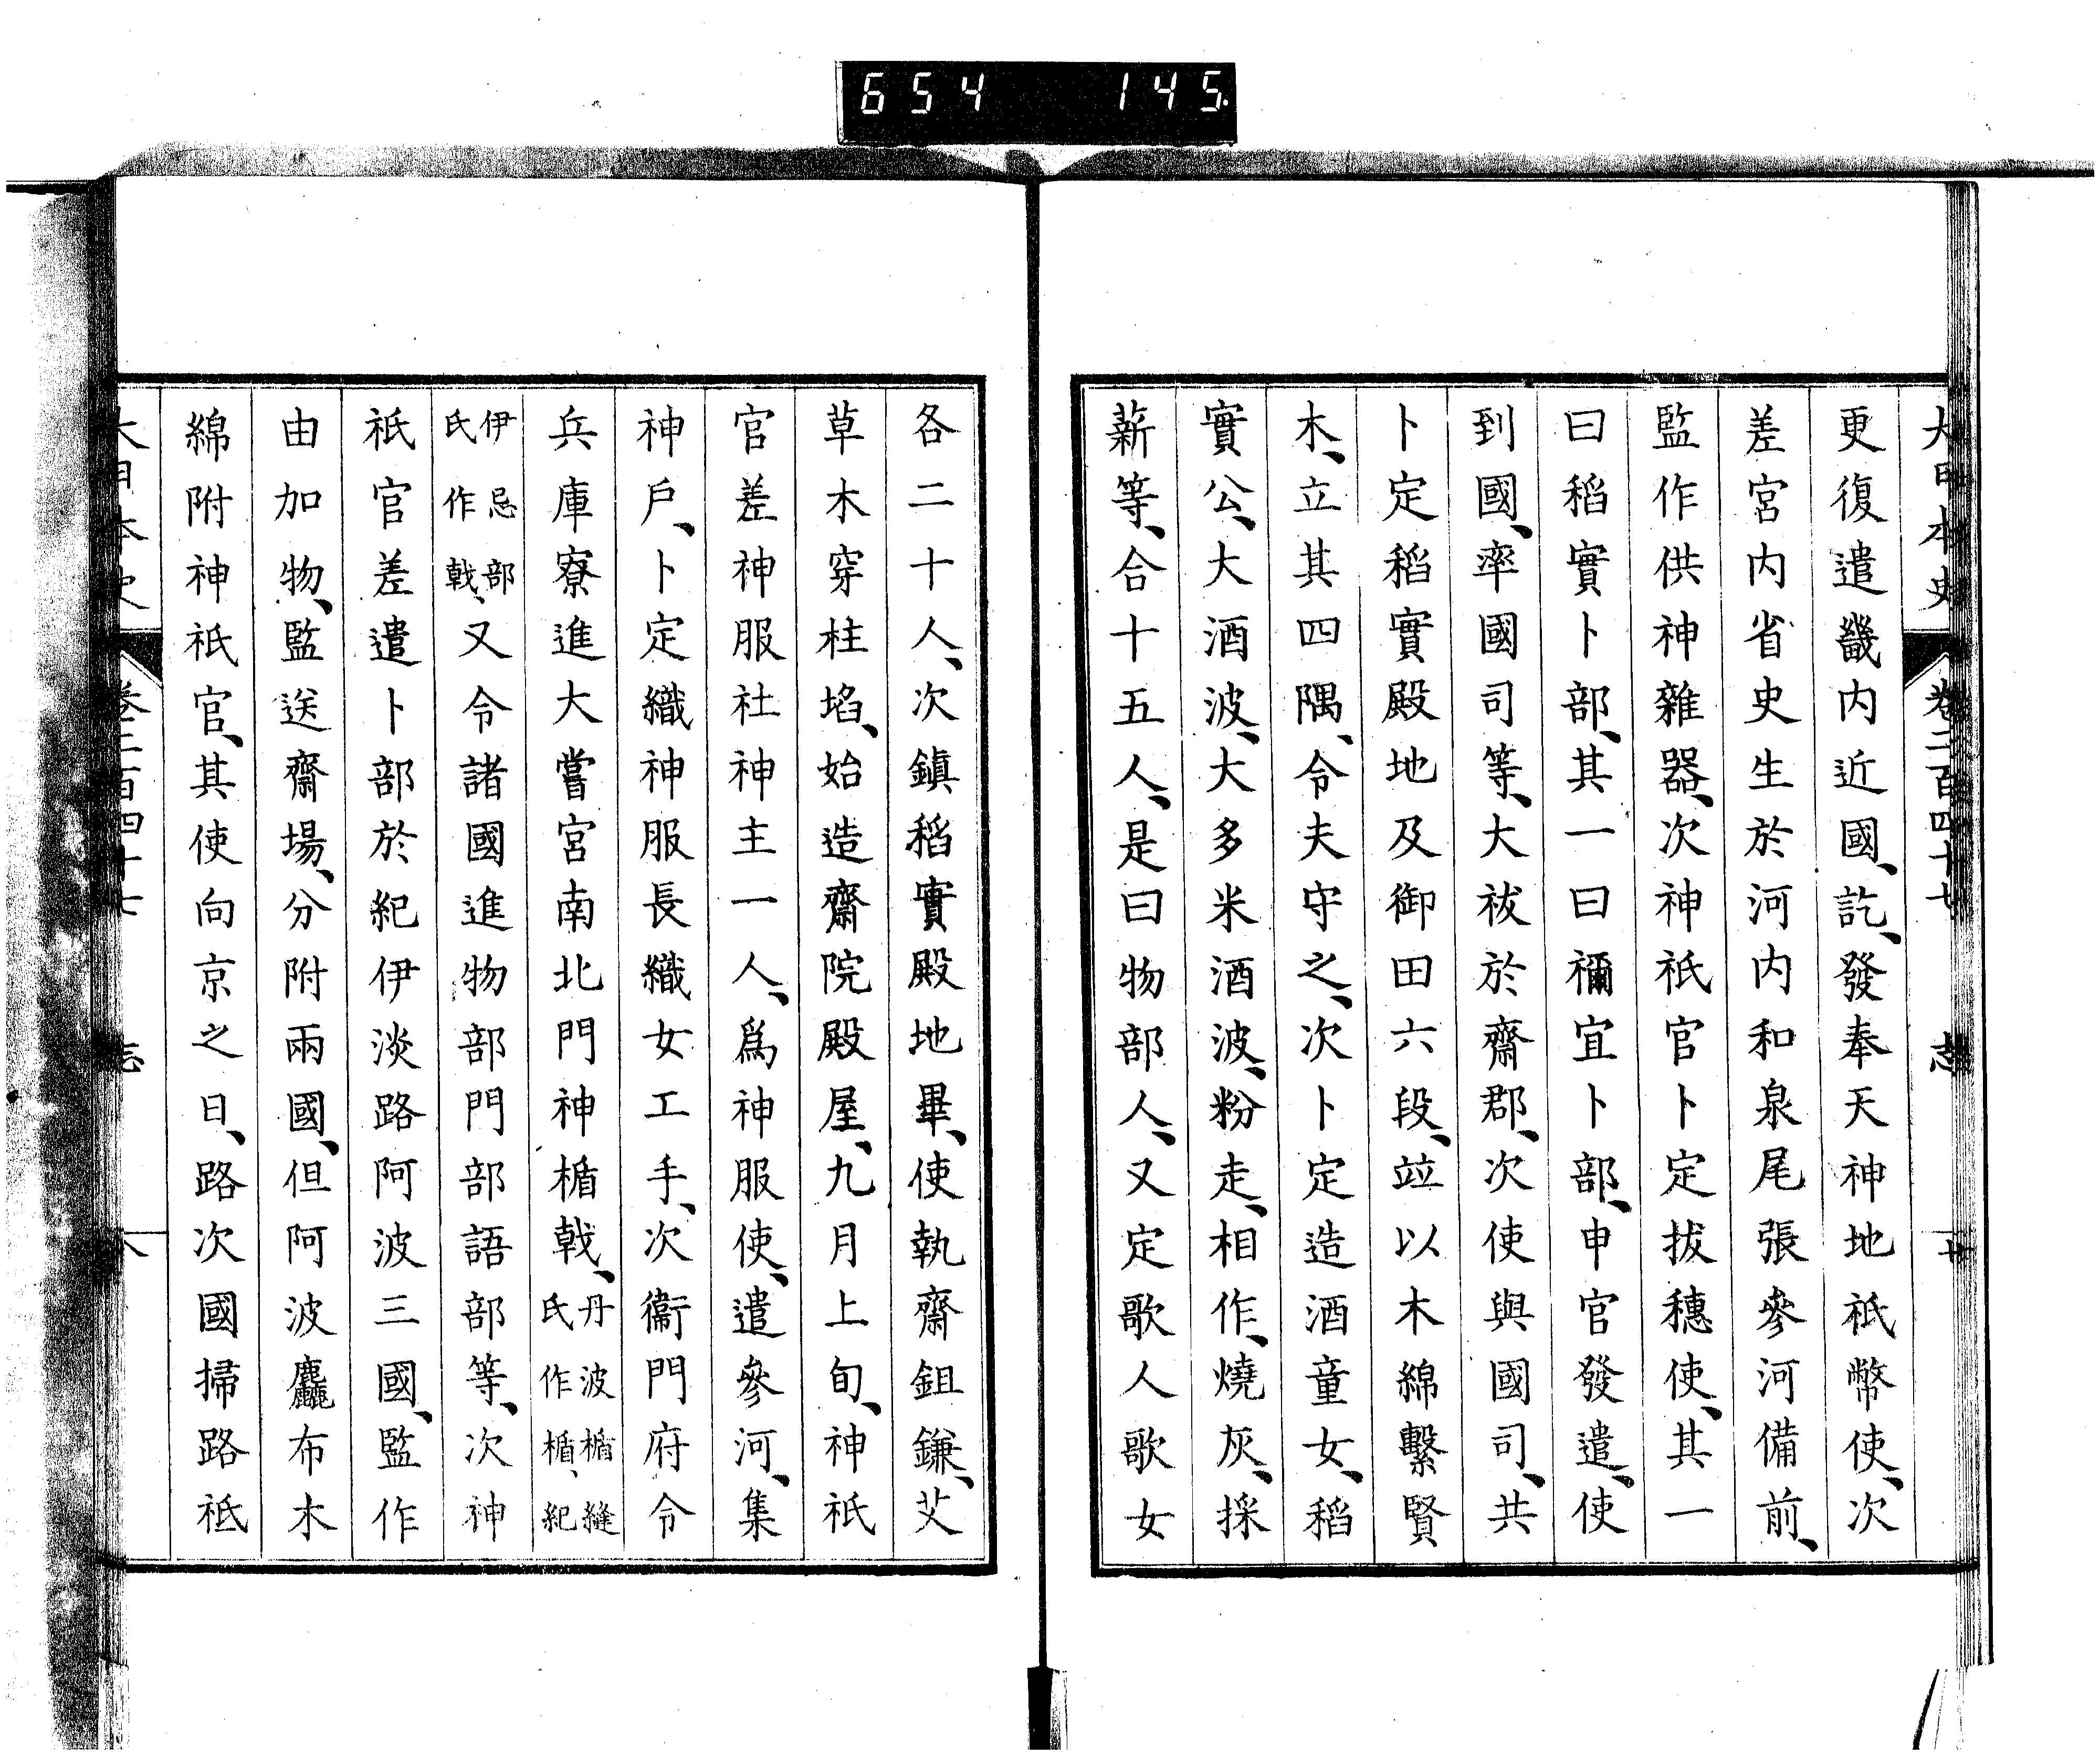 654 145
大日本史 卷二百四十七 志
更復遣畿内近國、訖、發奉天神地祇幣使、次
差宮内省史生於河内和泉尾張參河備前、
監作供神雜器、次神祇官卜定拔穗使、其一
曰稻實卜部、其一曰禰宜卜部、申官發遣、使
到國、率國司等、大祓於齋郡、次使與國司、共
卜定稻實殿地及御田六段、竝以木綿繫賢
木、立其四隅、令夫守之、次卜定造酒童女、稻
實公、大酒波、大多米酒波、粉走、相作、燒灰、採
薪等、合十五人、是曰物部人、又定歌人歌女
各二十人、次鎭稻實殿地畢、使執齋鉏鎌、艾
草木穿柱埳、始造齋院殿屋、九月上旬、神祇
官差神服社神主一人、爲神服使、遣參河、集
神戶、卜定織神服長織女工手、次衞門府令
兵庫寮進大嘗宮南北門神楯戟、丹波楯縫
氏作楯、紀
伊忌部
氏作戟、又令諸國進物部門部語部等、次神
祇官差遣卜部於紀伊淡路阿波三國、監作
由加物、監送齋場、分附兩國、但阿波麤布木
綿附神祇官、其使向京之日、路次國掃路祗
大日本史 卷二百四十七 志